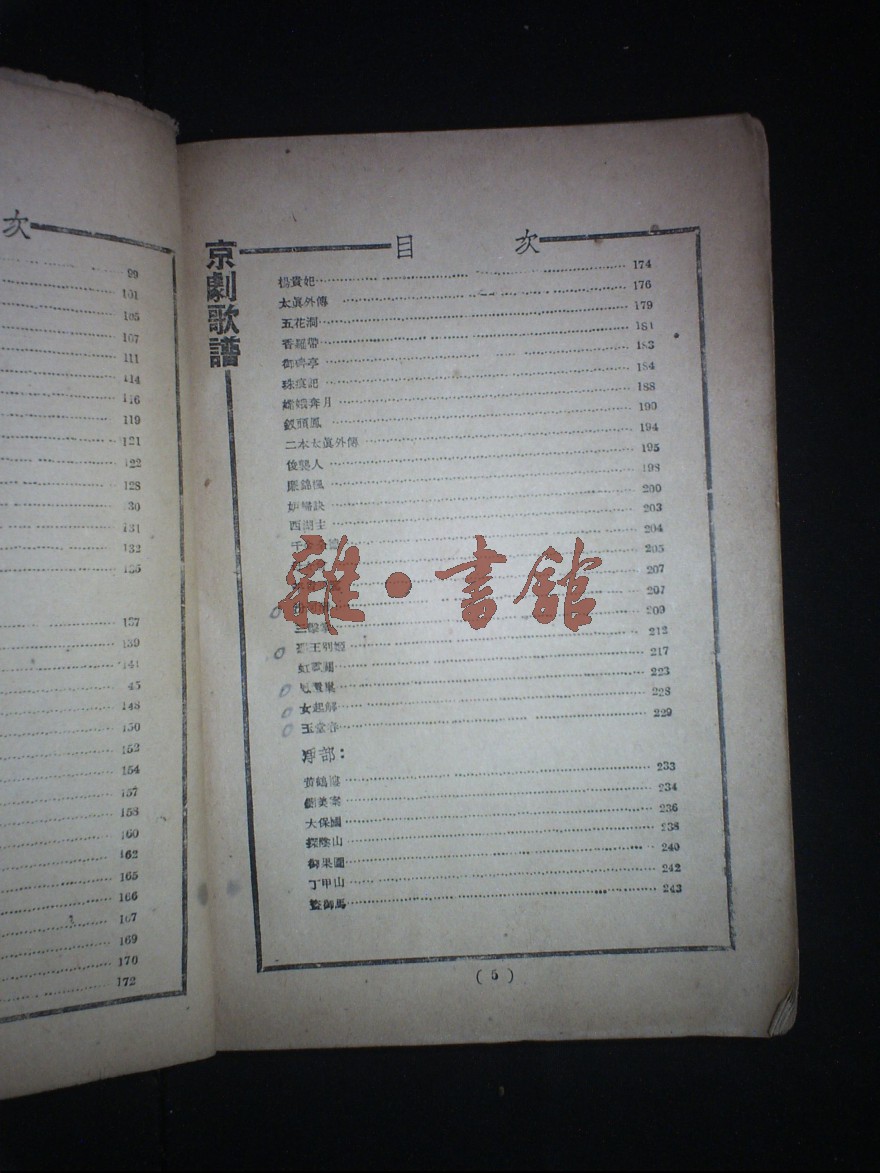 次
99
101
105
107
111
114
116
119
121
122
128
30
131
132
135
137
139
141
45
148
150
152
154
157
158
160
162
165
166
167
169
170
172
京劇歌譜
目 次
楊貴妃 174
太眞外傳 176
五花洞 179
香羅帶 181
御碑亭 183
珠痕記 184
嫦娥奔月 188
釵頭鳳 190
二本太眞外傳 194
俊襲人 195
廉錦楓 198
妒婦訣 200
西湖主 203
204
205
207
207
三擊掌 209
霸王別姬 212
虹霓關 217
鳳還巢 223
女起解 228
玉堂春 229
淨部：
黃鶴樓 233
鍘美案 234
大保國 236
探陰山 238
御果園 240
丁甲山 242
盜御馬 243
( 5 )
雜·書館